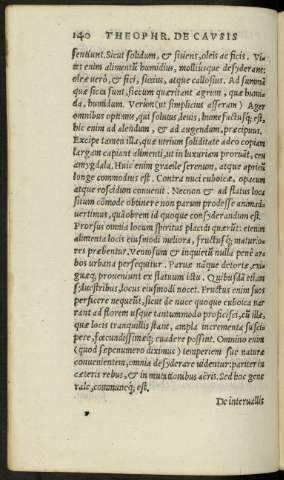 140 THEOPHR. DE CAVSIS
sentiunt. Sicut solidum, & sitiens, oleis ac ficis. Vi
tes enim alimentũ humidius, molliúsque desyderant:
oleæ uerò, & fici, siccius, atque callosius. Ad summã
quæ sicca sunt, siccum quæritant agrum, quæ humi
da, humidum. Verùm (ut simplicius asseram) Ager
omnibus optimus, qui solutus, leuis, humefactusq́; est,
hic enim ad alendum, & ad augendum, præcipuus.
Excipe tamen illa, quæ utrium soliditate adeo copiam
largam capiant alimenti, ut in luxuriam proruãt, ceu
amygdala. Huic enim gracile serenum, atque apricũ
longe commodius est. Contra nuci euboicæ, opacum
atque roscidum conuenit. Necnon & ad flatus loca
situm cõmode obtinere non parum prodesse animad
uertimus, quã obrem id quoque consyderandum est.
Prorsus omnia locum spiritus placidi quærũt: etenim
alimenta locis eiusmodi meliora, fructusq́; maturio
res præbentur. Venosum & inquietũ nulla penè ar
bos urbana persequitur. Paruæ nãque detortæ, exi-
guæq́; proueniunt ex flatuum ictu. Quibusdã etiam
syluestribus, locus eiusmodi nocet. Fructus enim suos
perficere nequeũt, sicut de nuce quoque euboica nar
rant ad florem usque tantummodo proficisci, cũ illæ,
quæ locis tranquillis stant, ampla incrementa susci
pere, fœcundissimæq́; euadere possint. Omnino eum
(quod sæpenumero diximus) temperiem suæ naturæ
conuenientem, omnia desyderare uidentur: pariter in
cæteris rebus, & in mutationibus aëris. Sed hoc gene
rale, communeq́; est.
De interuallis